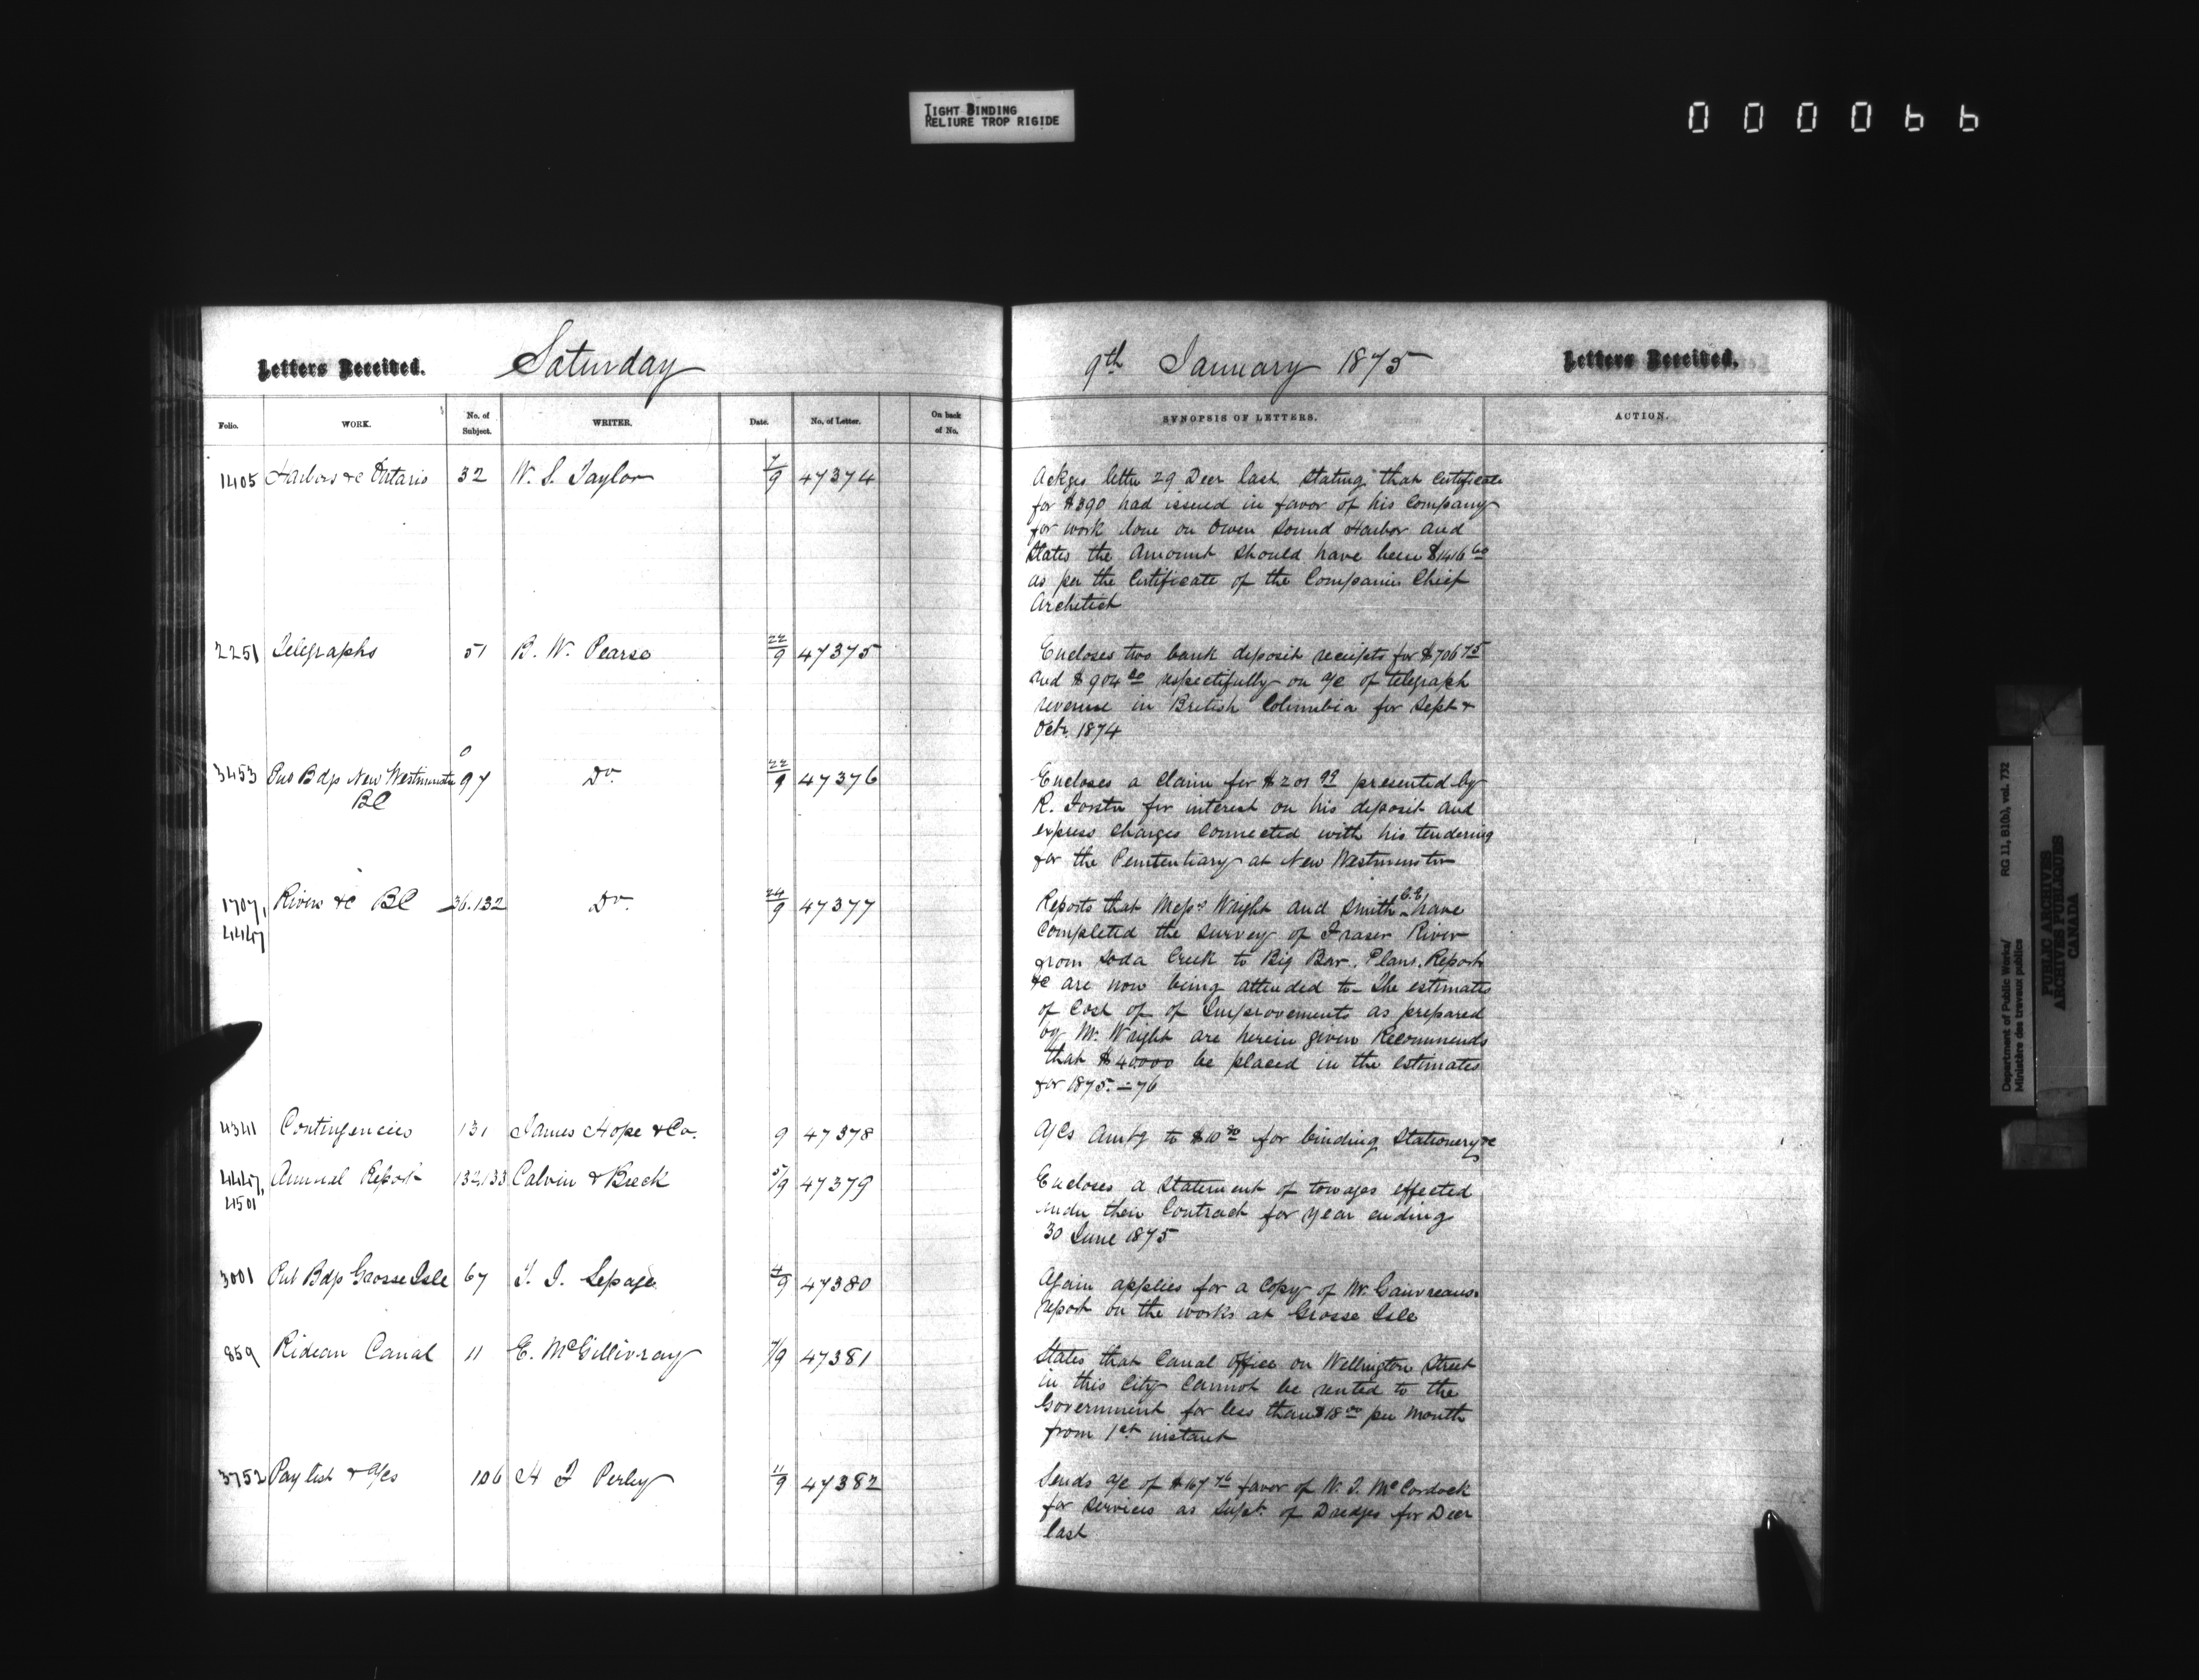 TIGHT BINDING
RELIURE TROP RIGIDE
000066
Letters Received. Saturday
Folio. WORK. No. of Subject. WRITER. Date. No. of Letter. On back of No.
1405 Harbors &c Ontario 32 W. S. Taylor 7/9 47374
2251 Telegraphs 51 B. W. Pearse 22/9 47375
3453 Pub Bdgs New Westminster 97 Do. 22/9 47376
BC
1707, Rivers &c BC 36.132 Do. 24/9 47377
4447
4341 Contingencies 131 James Hope & Co. 9 47378
4447, Annual Report 132,133 Calvin & Breck 5/9 47379
4501
3001 Pub Bdgs Grosse Isle 67 T. I. Lepage 4/9 47380
859 Rideau Canal 11 E. McGillivray 7/9 47381
3752 Pay list & a/cs 106 H F Perley 11/9 47382
9th January 1875 Letters Received.
SYNOPSIS OF LETTERS. ACTION.
Ackges letter 29 Decr last stating that certificate
for $390 had issued in favor of his Company
for work done on Owen Sound Harbor and
States the amount should have been $1416 60
as per the Certificate of the Companies Chief
Architect
Encloses two bank deposit receipts for $706 75
and $904 00 respectifully on a/c of telegraph
revenue in British Columbia for Sept &
Oct. 1874
Encloses a claim for $201 99 presented by
R. Forster for interest on his deposit and
express charges connected with his tendering
for the Penitentiary at New Westminster
Reports that Messrs Wright and Smith C.E. have
completed the survey of Fraser River
from Soda Creek to Big Bar. Plans, Report
&c are now being attended to - The estimates
of Cost of of Improvements as prepared
by Mr. Wright are herein given Recommends
that $40000 be placed in the estimates
for 1875.-76
A/Cs Amtg to $10 30 for binding, Stationery &c
Encloses a statement of towages effected
under their Contract for year ending
30 June 1875
Again applies for a copy of Mr. Gauvreaus
report on the works at Grosse Isle
States that Canal Office on Wellington Street
in this City cannot be rented to the
Government for less than $18 00 per month
from 1st instant
Sends a/c of $167 76 favor of W. J. McCordock
for services as Supt. of Dredges for Decr
last
Department of Public Works/ RG 11, B1(b), vol. 732
Ministère des travaux publics
PUBLIC ARCHIVES
ARCHIVES PUBLIQUES
CANADA